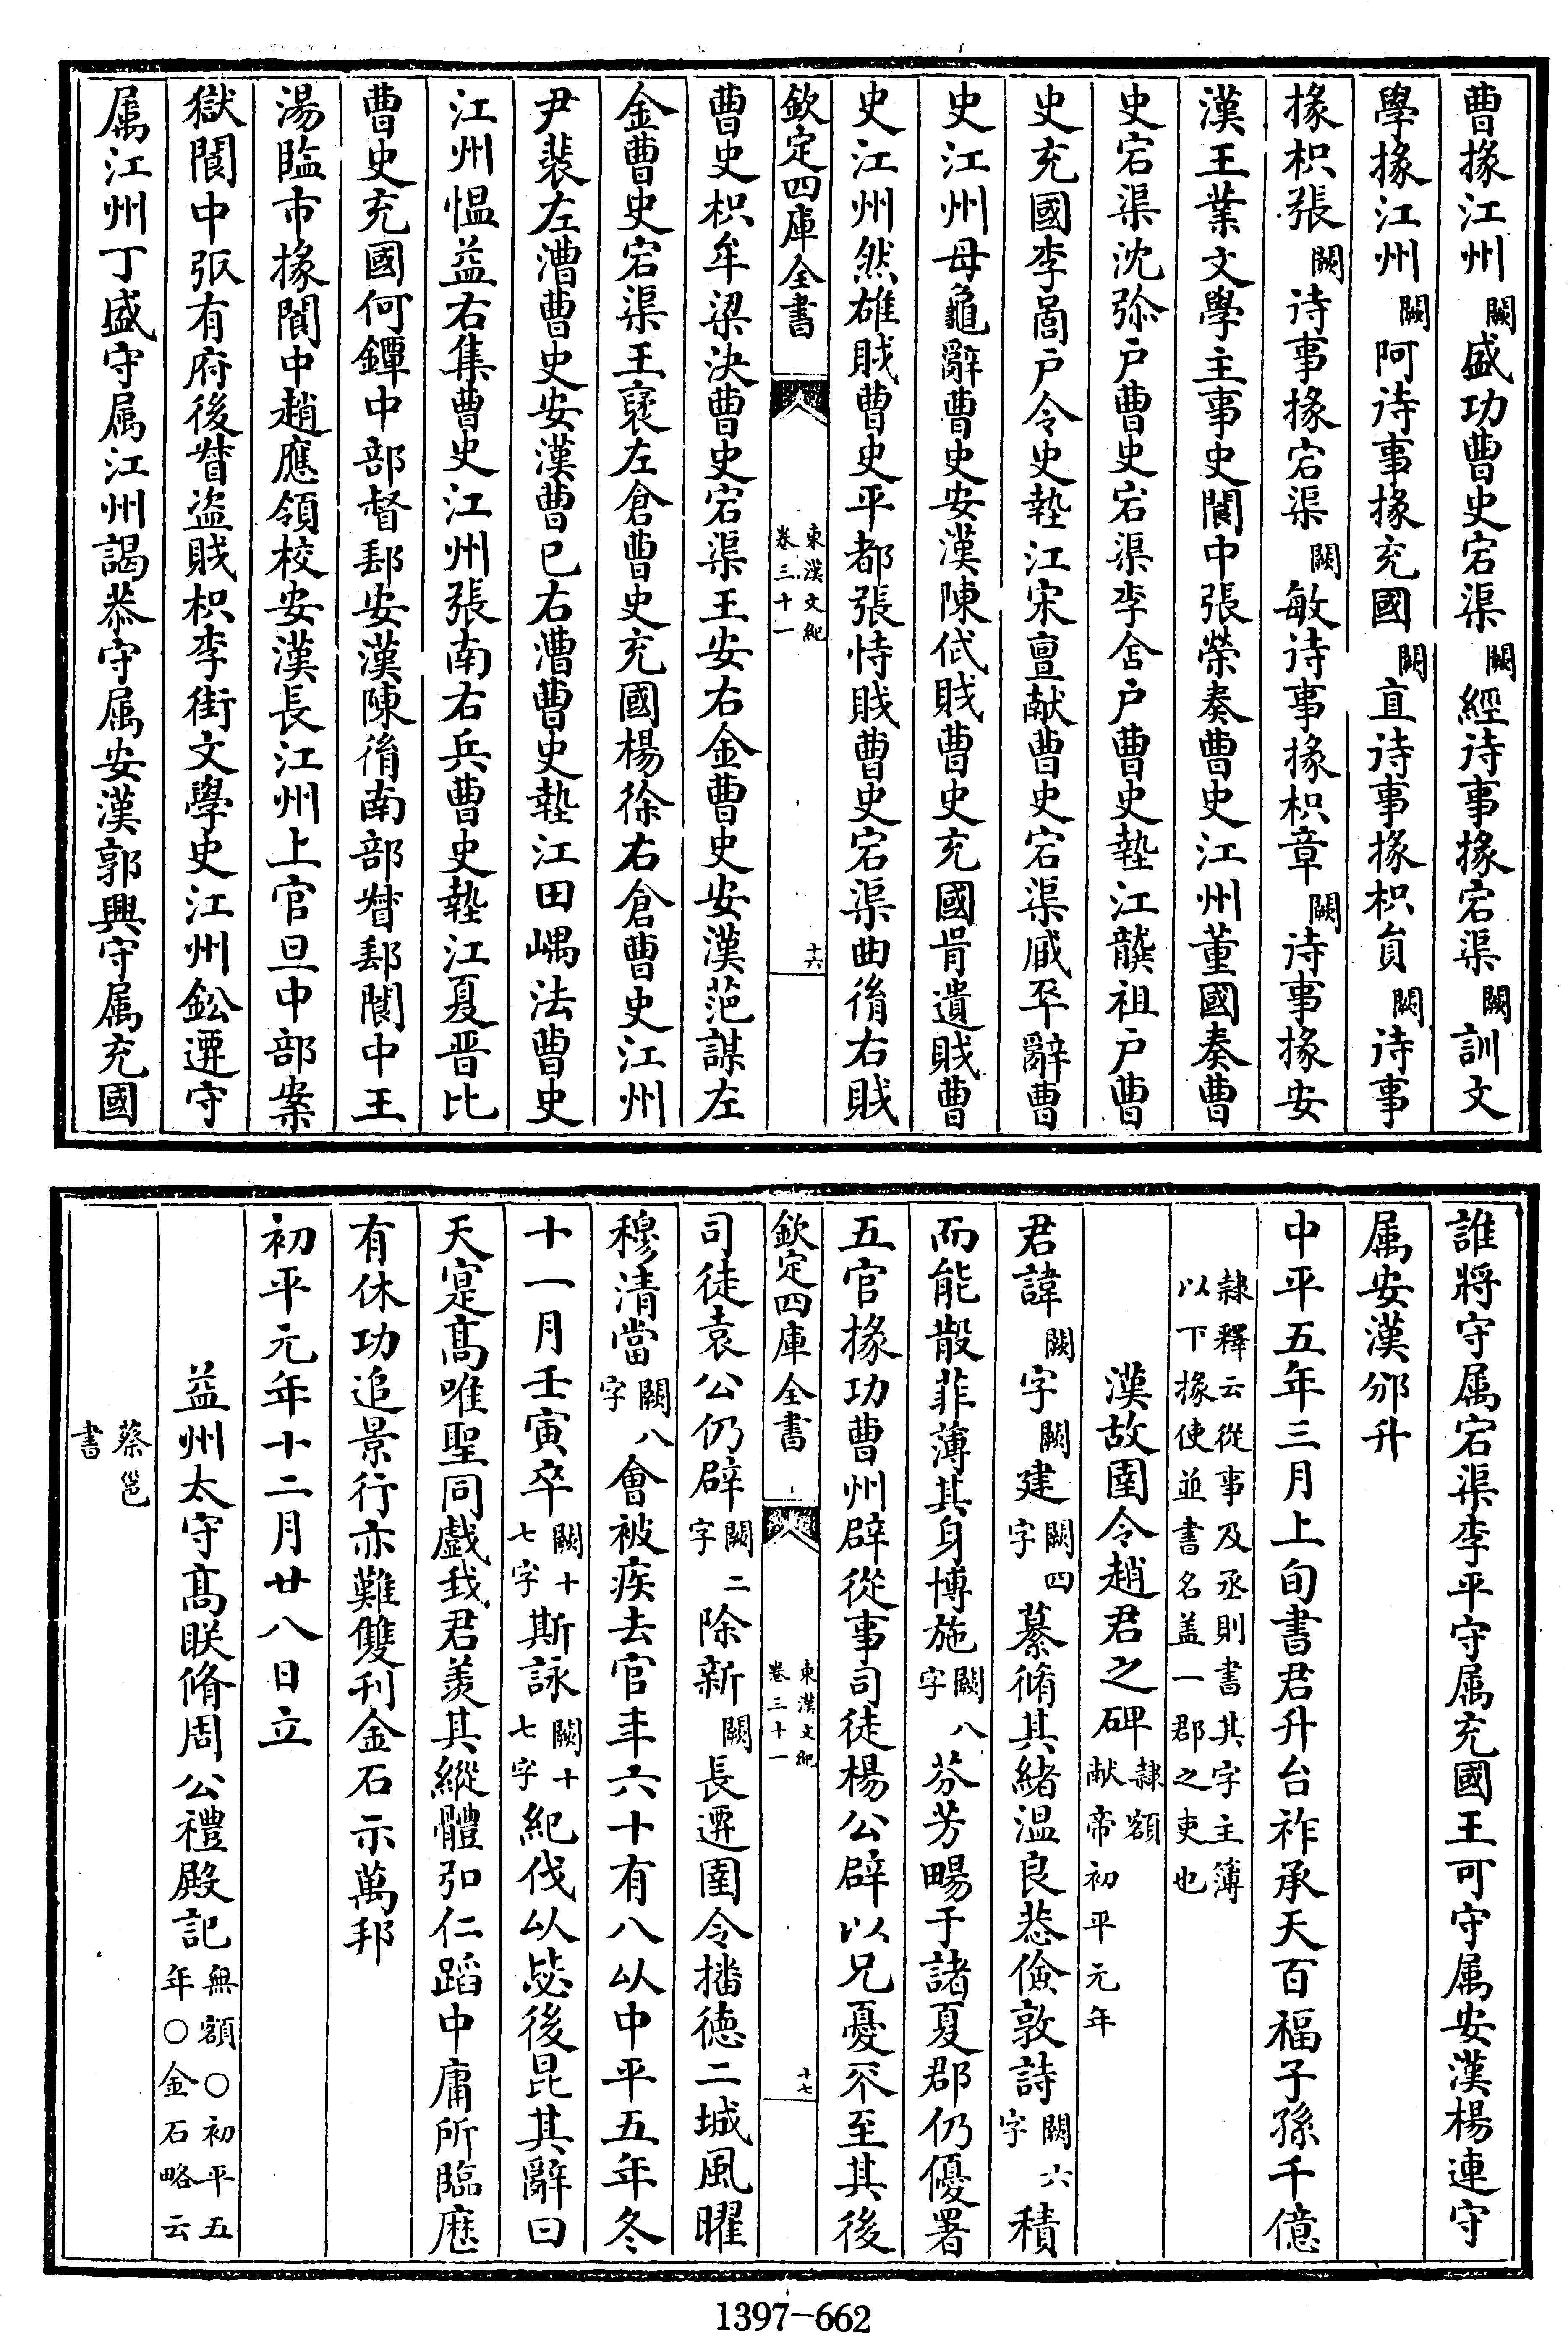 曹掾江州闕盛功曹史宕渠闕經待事掾宕渠闕訓文
學掾江州闕阿待事掾充國闕直待事掾枳負闕待事
掾枳張闕待事掾宕渠闕敏待事掾枳章闕待事掾安
漢王業文學主事史閬中張榮奏曹史江州董國奏曹
史宕渠沈弥户曹史宕渠李舍户曹史墊江龔祖户曹
史充國李咼户令史墊江宋亶献曹史宕渠臧平辭曹
史江州母龜辭曹史安漢陳伭賊曹史充國肯遺賊曹
史江州然雄賊曹史平都張恃賊曹史宕渠曲脩右賊
欽定四庫全書
東漢文紀
卷三十一
十六
曹史枳牟梁決曹史宕渠王安右金曹史安漢范謀左
金曹史宕渠王襃左倉曹史充國楊徐右倉曹史江州
尹裴左漕曹史安漢曹巳右漕曹史墊江田嵎法曹史
江州愠益右集曹史江州張南右兵曹史墊江夏晋比
曹史充國何鐔中部督郵安漢陳脩南部督郵閬中王
湯臨市掾閬中趙應領校安漢長江州上官旦中部案
獄閬中張有府後督盗賊枳李街文學史江州鈆遷守
属江州丁盛守属江州謁恭守属安漢郭興守属充國
誰將守属宕渠李平守属充國王可守属安漢楊連守
属安漢邠升
中平五年三月上旬書君升台祚承天百福子孫千億
隸釋云從事及丞則書其字主簿
以下掾使並書名盖一郡之吏也
漢故圉令趙君之碑隸額
献帝初平元年
君諱闕字闕建闕四字纂脩其緒温良恭儉敦詩闕六字積
而能散菲薄其身博施闕八字芬芳暢于諸夏郡仍優署
五官掾功曹州辟從事司徒楊公辟以兄憂不至其後
欽定四庫全書
東漢文紀
卷三十一
十七
司徒袁公仍辟闕二字除新闕長遷圉令播德二城風曜
穆清當闕八字會被疾去官年六十有八以中平五年冬
十一月壬寅卒闕十七字斯詠闕十七字紀伐以毖後昆其辭曰
天寔高唯聖同戲我君羡其縱體弘仁蹈中庸所臨歴
有休功追景行亦難雙刊金石示萬邦
初平元年十二月廿八日立
益州太守高眹脩周公禮殿記無額○初平五
年○金石略云
蔡邕
書
1397-662